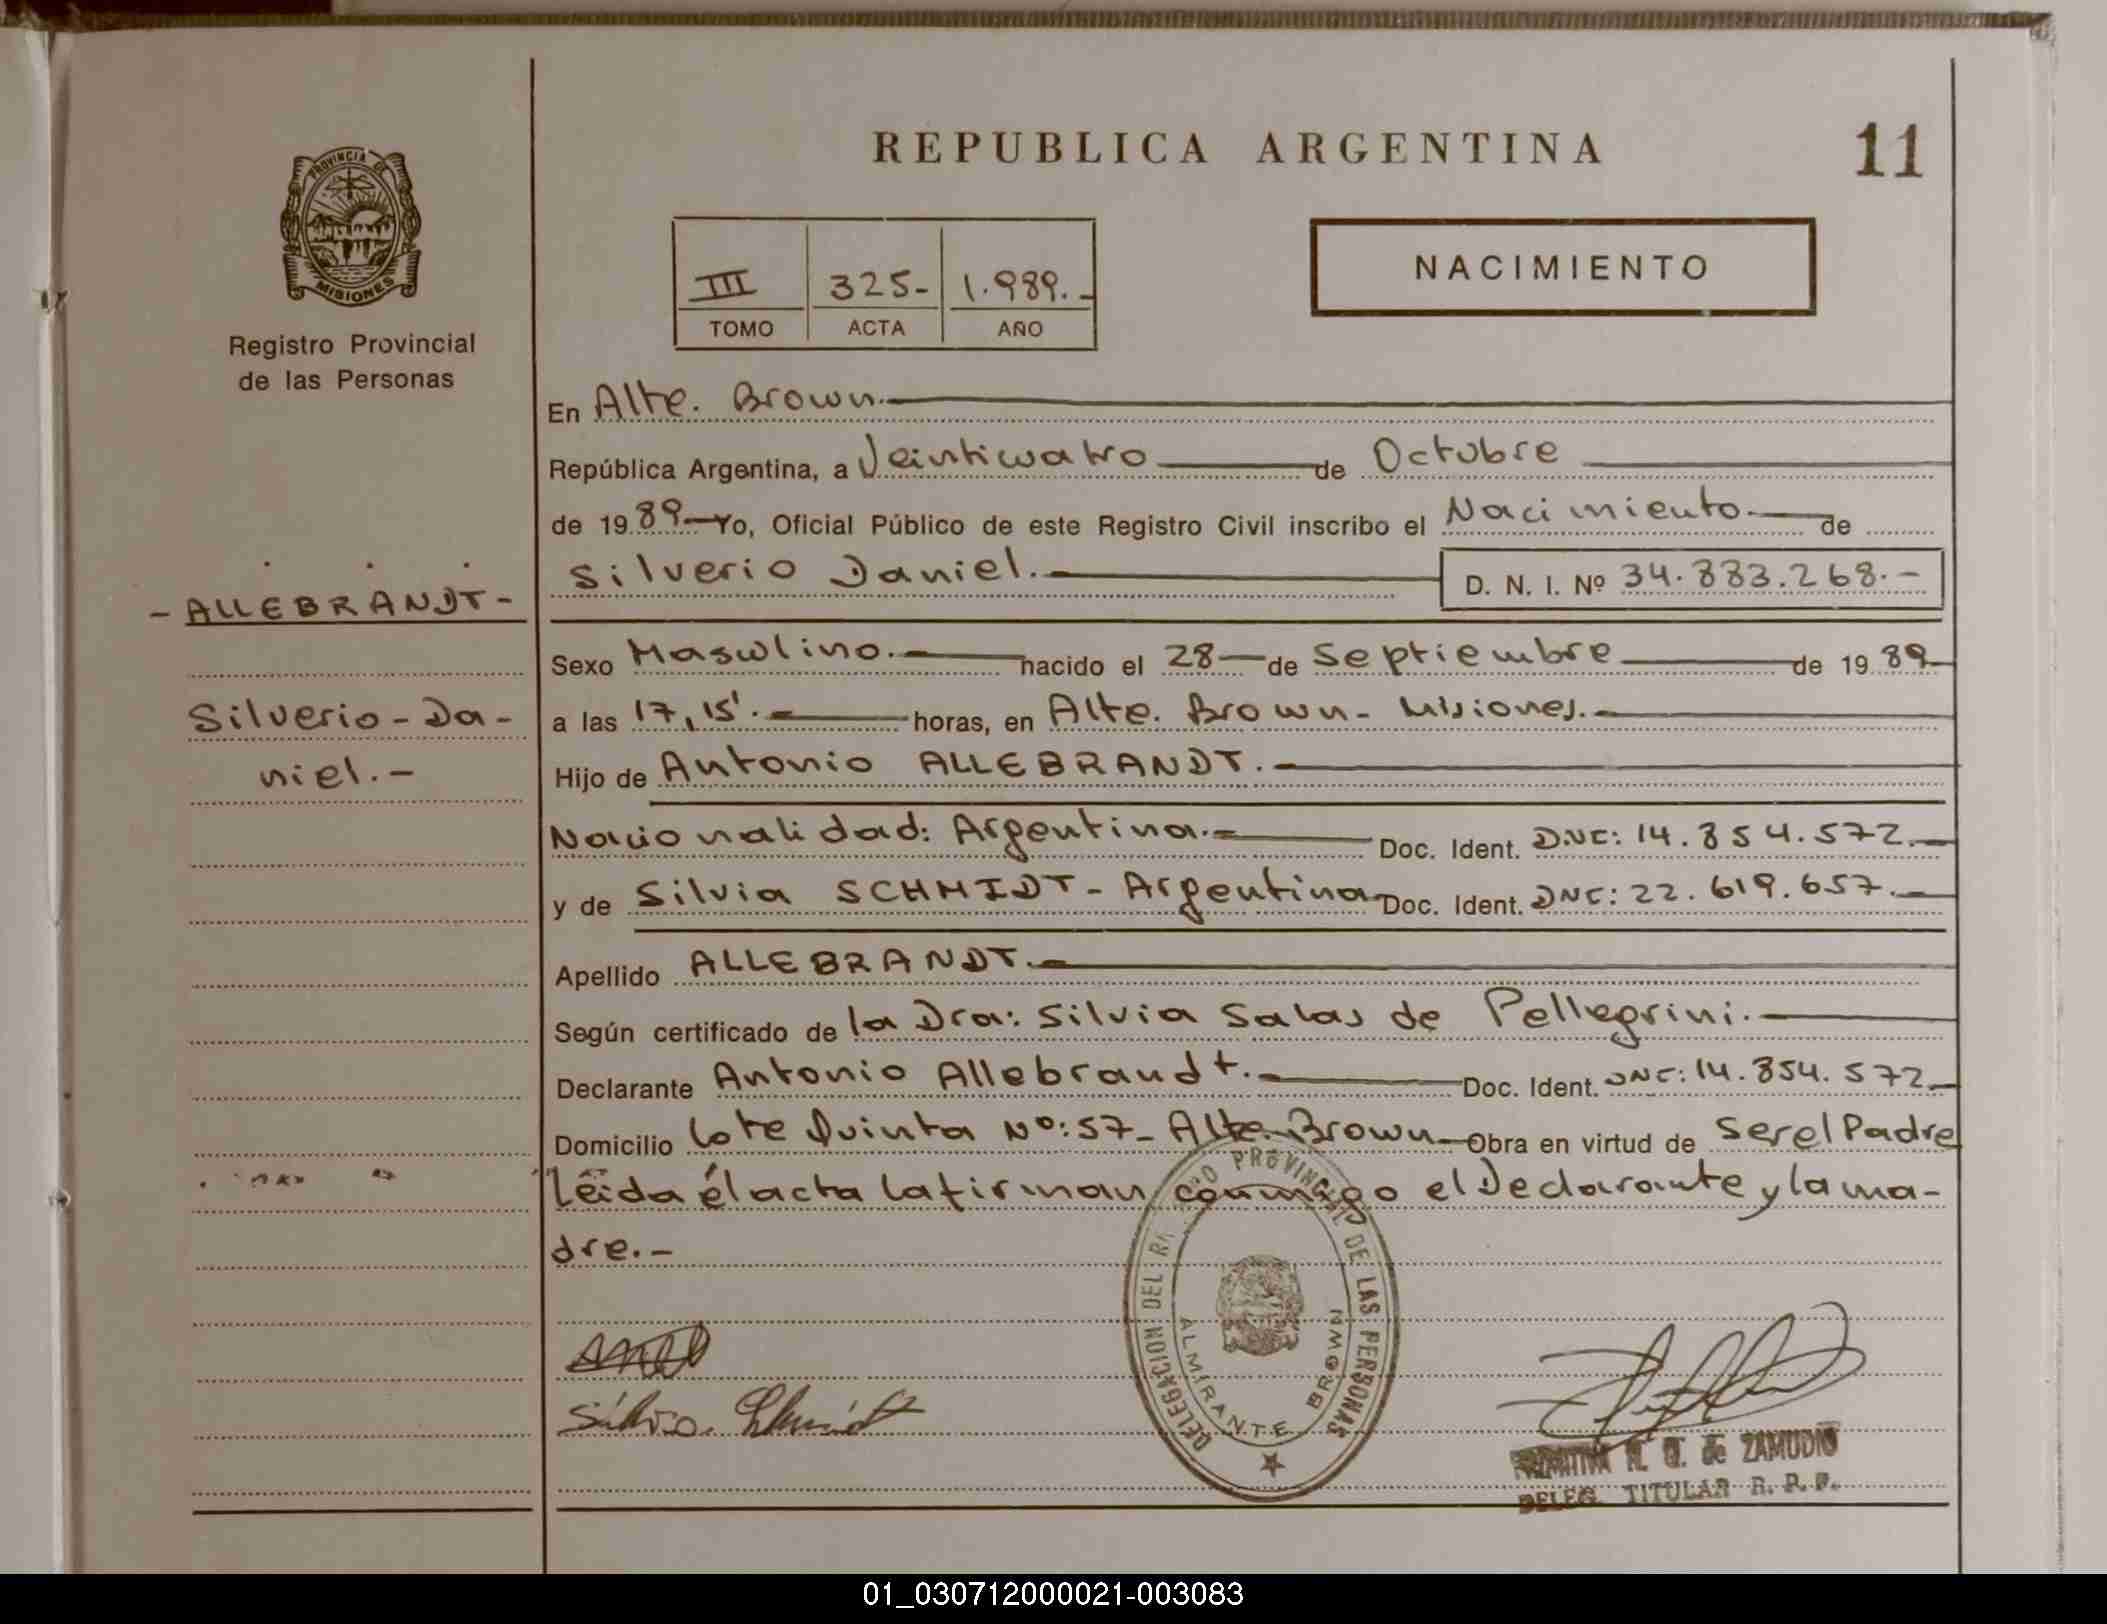 REPUBLICA ARGENTINA
11
PROVINCIA DE
MISIONES
Registro Provincial
de las Personas
III 325- 1.989.-
TOMO ACTA AÑO
NACIMIENTO
En Alte. Brown.
República Argentina, a Veinticuatro de Octubre
de 1989.- Yo, Oficial Público de este Registro Civil inscribo el Nacimiento.- de
Silverio Daniel.- D. N. I. Nº 34.883.268.-
-ALLEBRANDT-
Silverio-Da-
niel.-
Sexo Masculino.- nacido el 28- de Septiembre de 1989-
a las 17,15'.- horas, en Alte. Brown- Misiones.-
Hijo de Antonio ALLEBRANDT.-
Nacionalidad: Argentina.- Doc. Ident. DNI: 14.854.572.-
y de Silvia SCHMIDT- Argentina- Doc. Ident. DNI: 22.619.657.-
Apellido ALLEBRANDT.-
Según certificado de la Dra: Silvia Salas de Pellegrini.-
Declarante Antonio Allebrandt.- Doc. Ident. DNI: 14.854.572-
Domicilio Lote Quinta Nº:57- Alte. Brown- Obra en virtud de ser el Padre
Leida él acta la firman conmigo el Declarante y la ma-
dre.-
DELEGACION DEL PROVINCIAL DE LAS PERSONAS
ALMIRANTE BROWN
Silvia Schmidt
de ZAMUDIO
DELEG. TITULAR R. P. P.
01_030712000021-003083